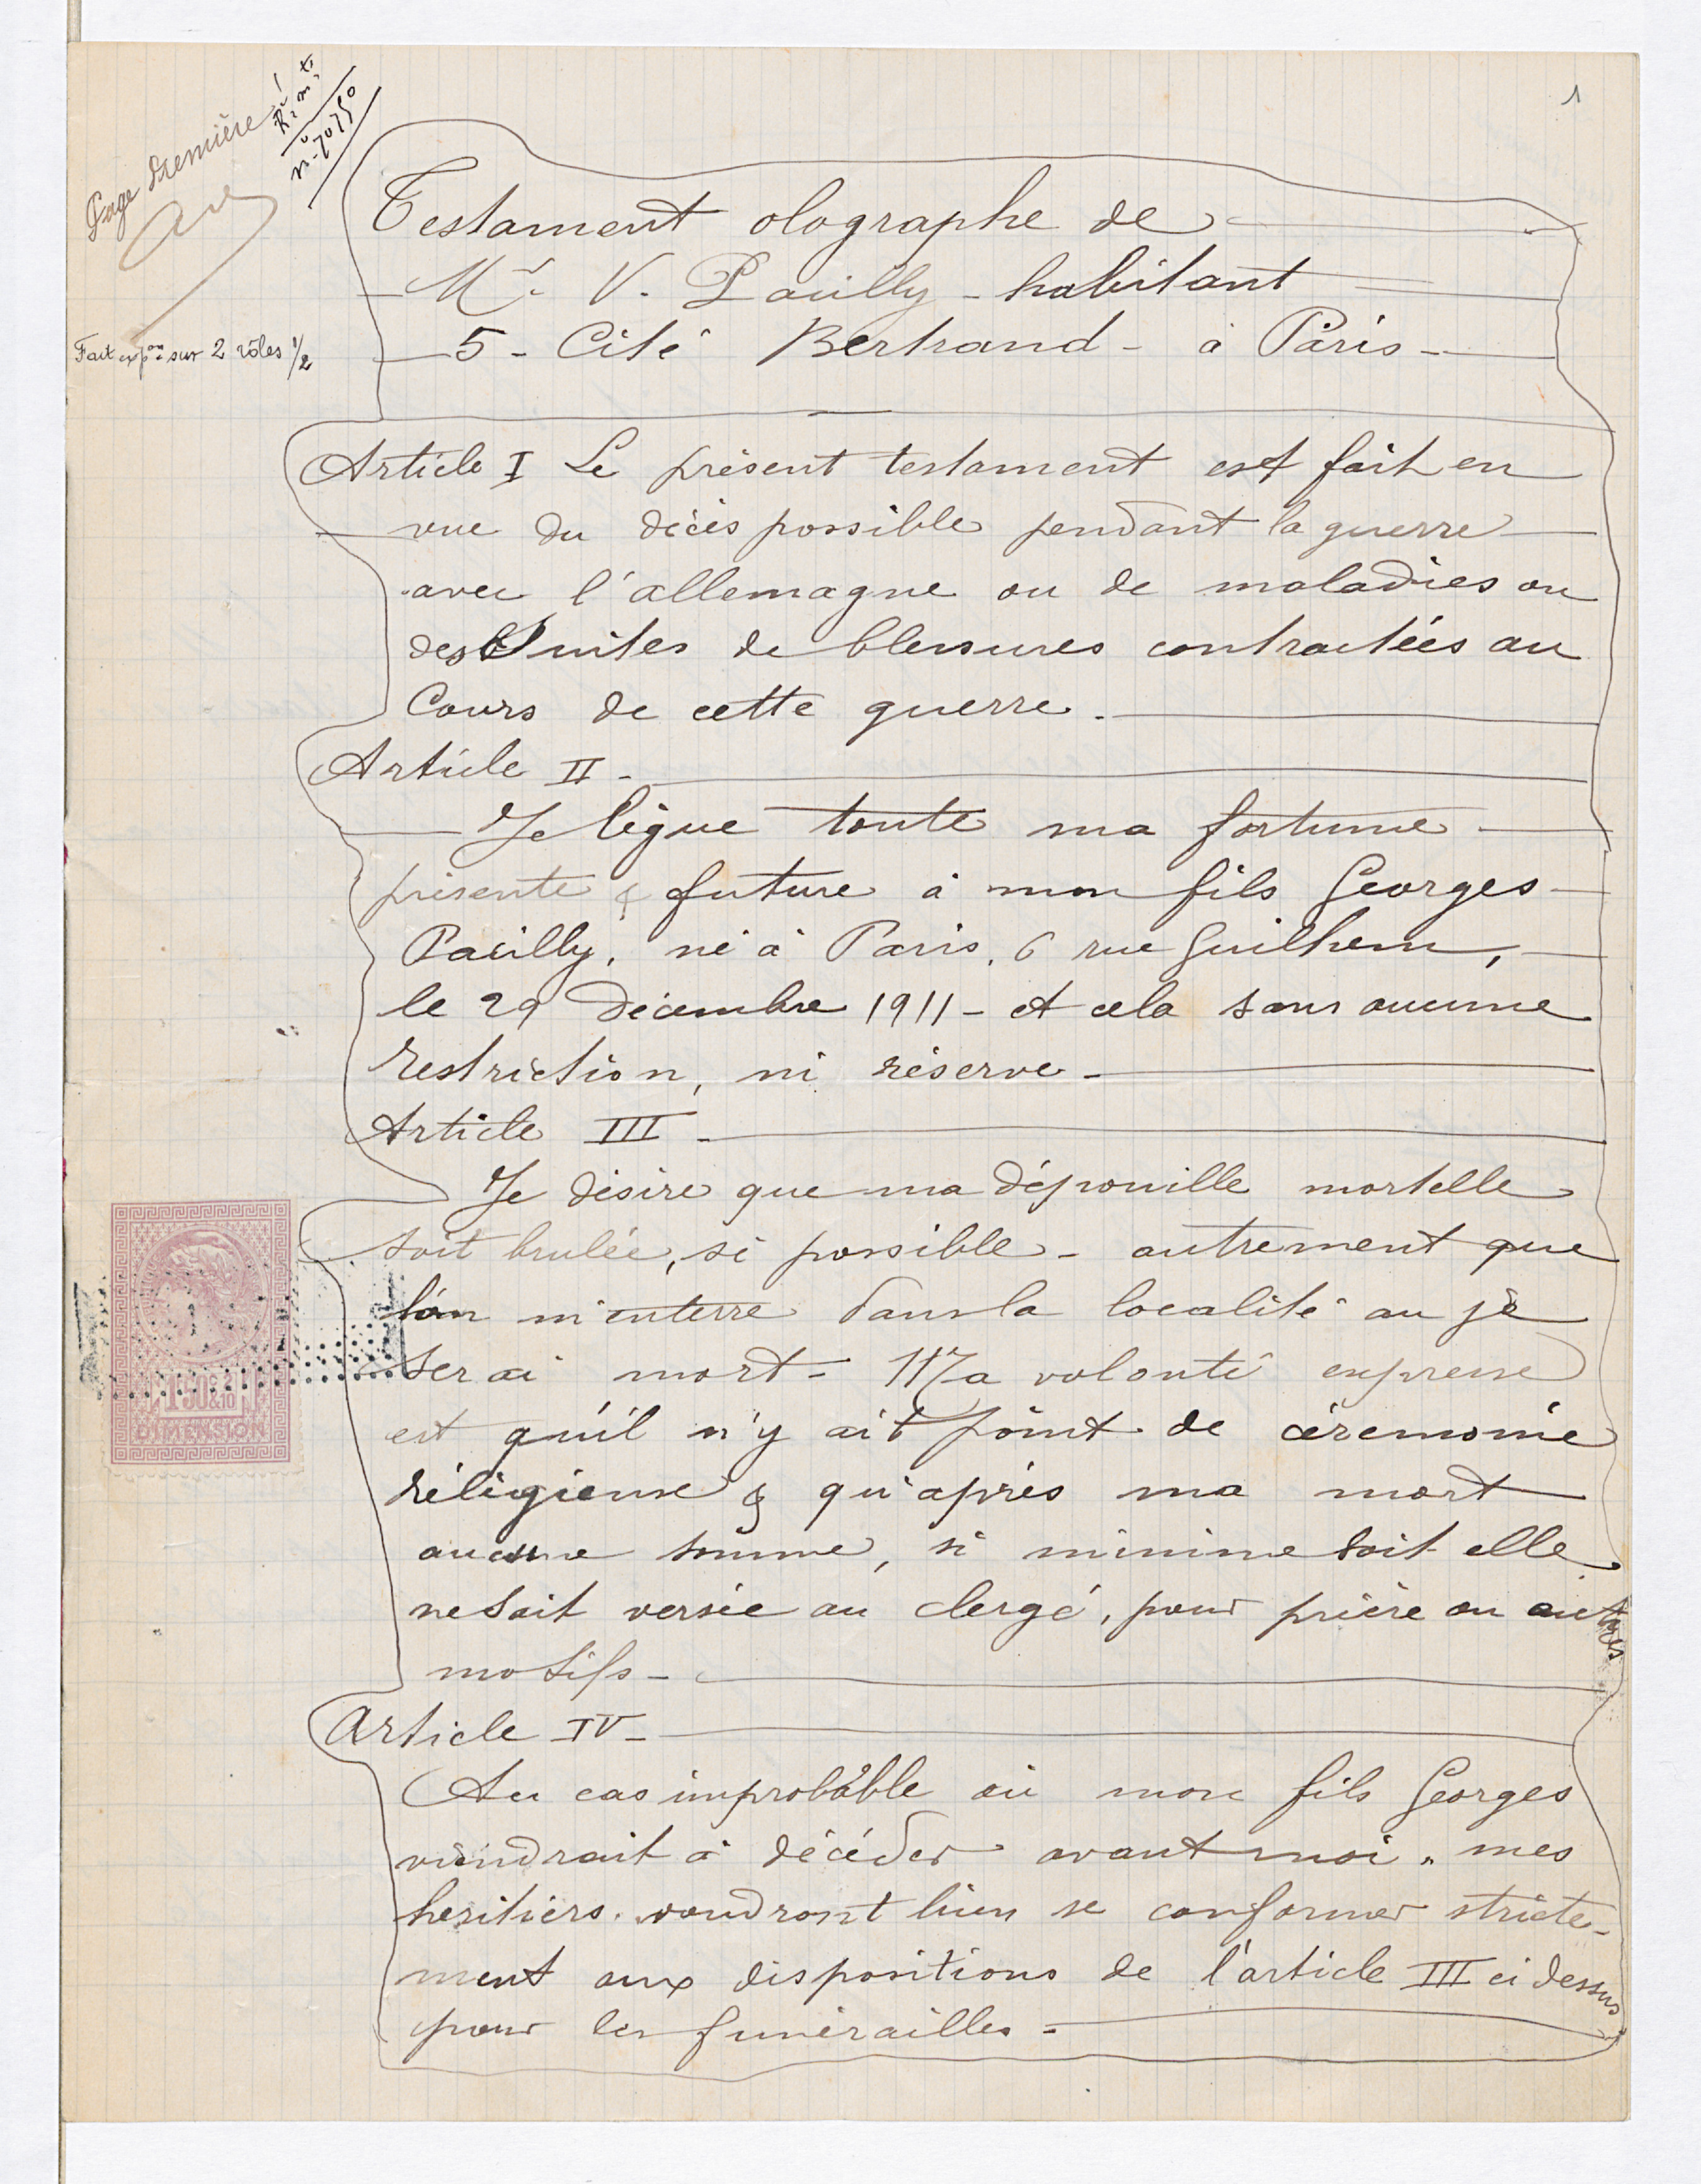 1
Page Première
Fait expon sur 2 rôles 1/2
Testament olographe de
Mr V. Pailly - habitant
5 - Cité Bertrand - à Paris -
Article I Le présent testament est fait en
vue du décès possible pendant la guerre
avec l'allemagne ou de maladies ou
des Suites de blessures contractées au
Cours de cette guerre.
Article II -
Je lègue toute ma fortune
présente & future à mon fils Georges
Pailly, né à Paris, 6 rue Guilhem,
le 29 Décembre 1911 - et cela sans aucune
restriction, ni réserve -
Article III -
Je désire que ma dépouille mortelle
soit brulée, si possible - autrement que
l'on m'enterre dans la localité ou je
serai mort - Ma volonté expresse
est qu'il n'y ait point de cérémonie
réligieuse & qu'après ma mort
aucune somme, si minime soit elle
ne soit versée au clergé, pour prière ou autres
motifs -
Article IV -
Au cas improbable où mon fils Georges
viendrait à décéder avant moi, mes
heritiers voudront bien se conformer stricte-
ment aux dispositions de l'article III ci dessus
pour les funérailles -
1f50c 2/10
DIMENSION